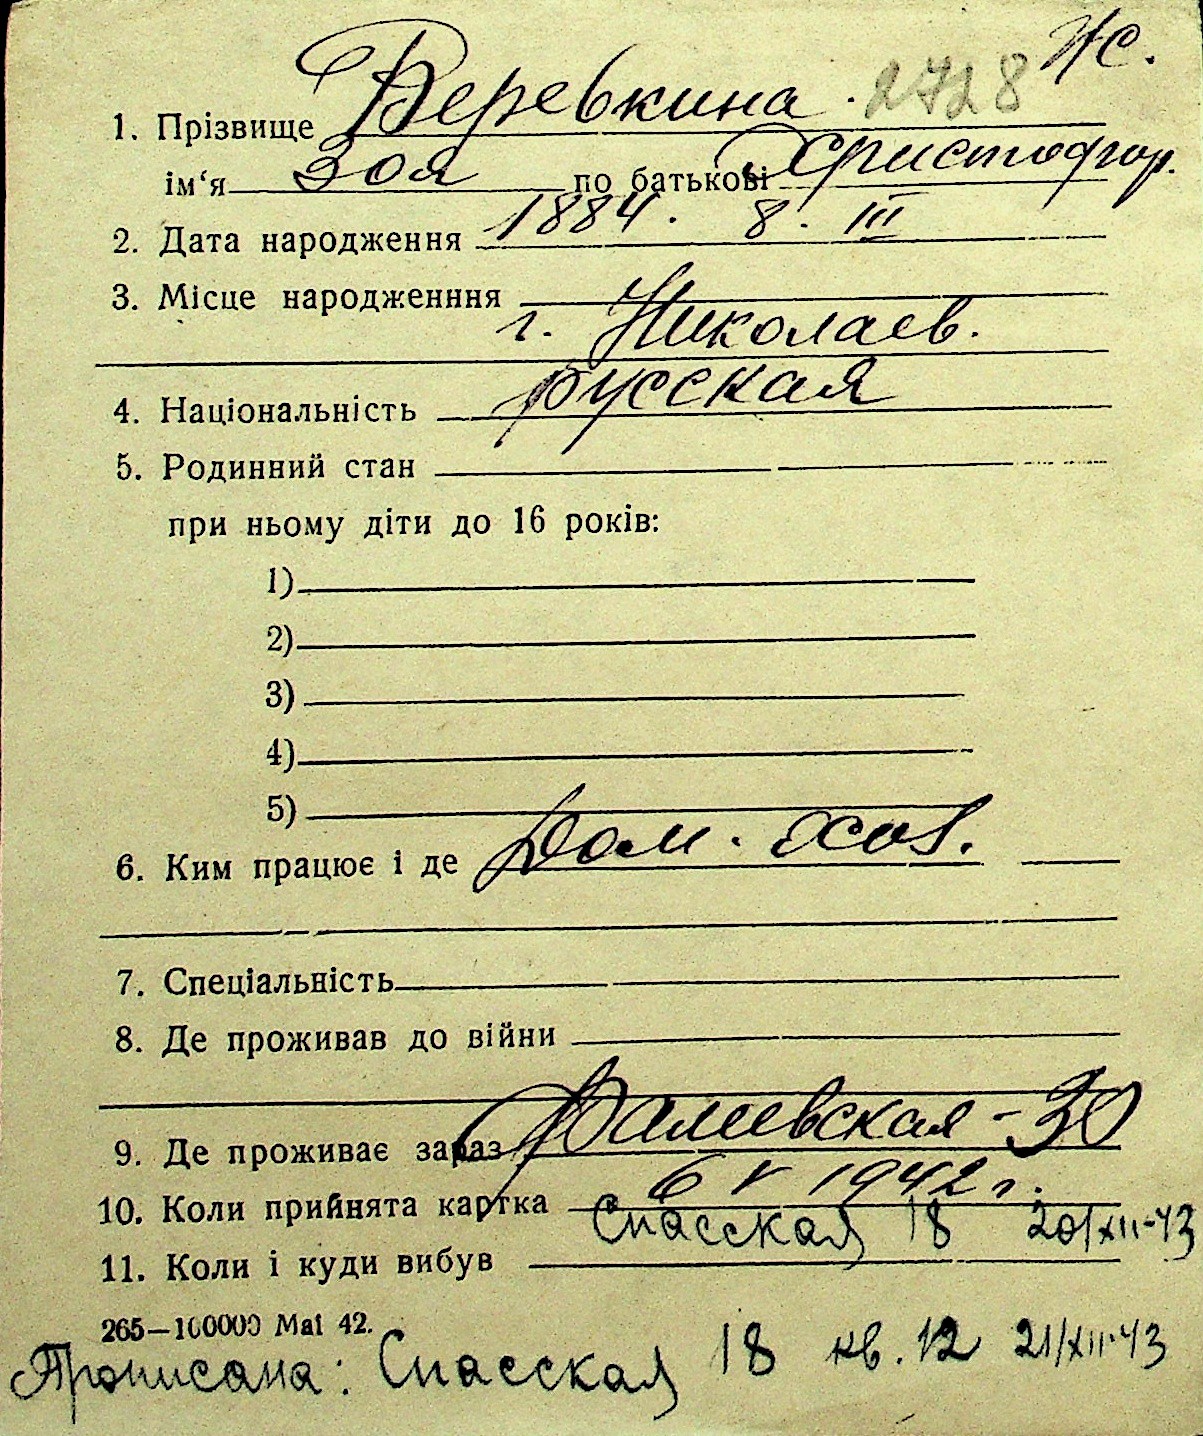 Ж.
1. Прізвище Веревкина. 2728
ім‘я Зоя по батькові Христофор.
2. Дата народження 1884. 8. III
3. Місце народженння
г. Николаев.
4. Національність русская
5. Родинний стан
при ньому діти до 16 років:
1)
2)
3)
4)
5)
6. Ким працює і де Дом. хоз.
7. Спеціальність
8. Де проживав до війни
9. Де проживає зараз Фалеевская-30
10. Коли прийнята картка 6 V 1942 г.
Спасская 18 20/XII-43
11. Коли і куди вибув
265—100000 Mai 42.
Прописана: Спасская 18 кв. 12 21/XII-43